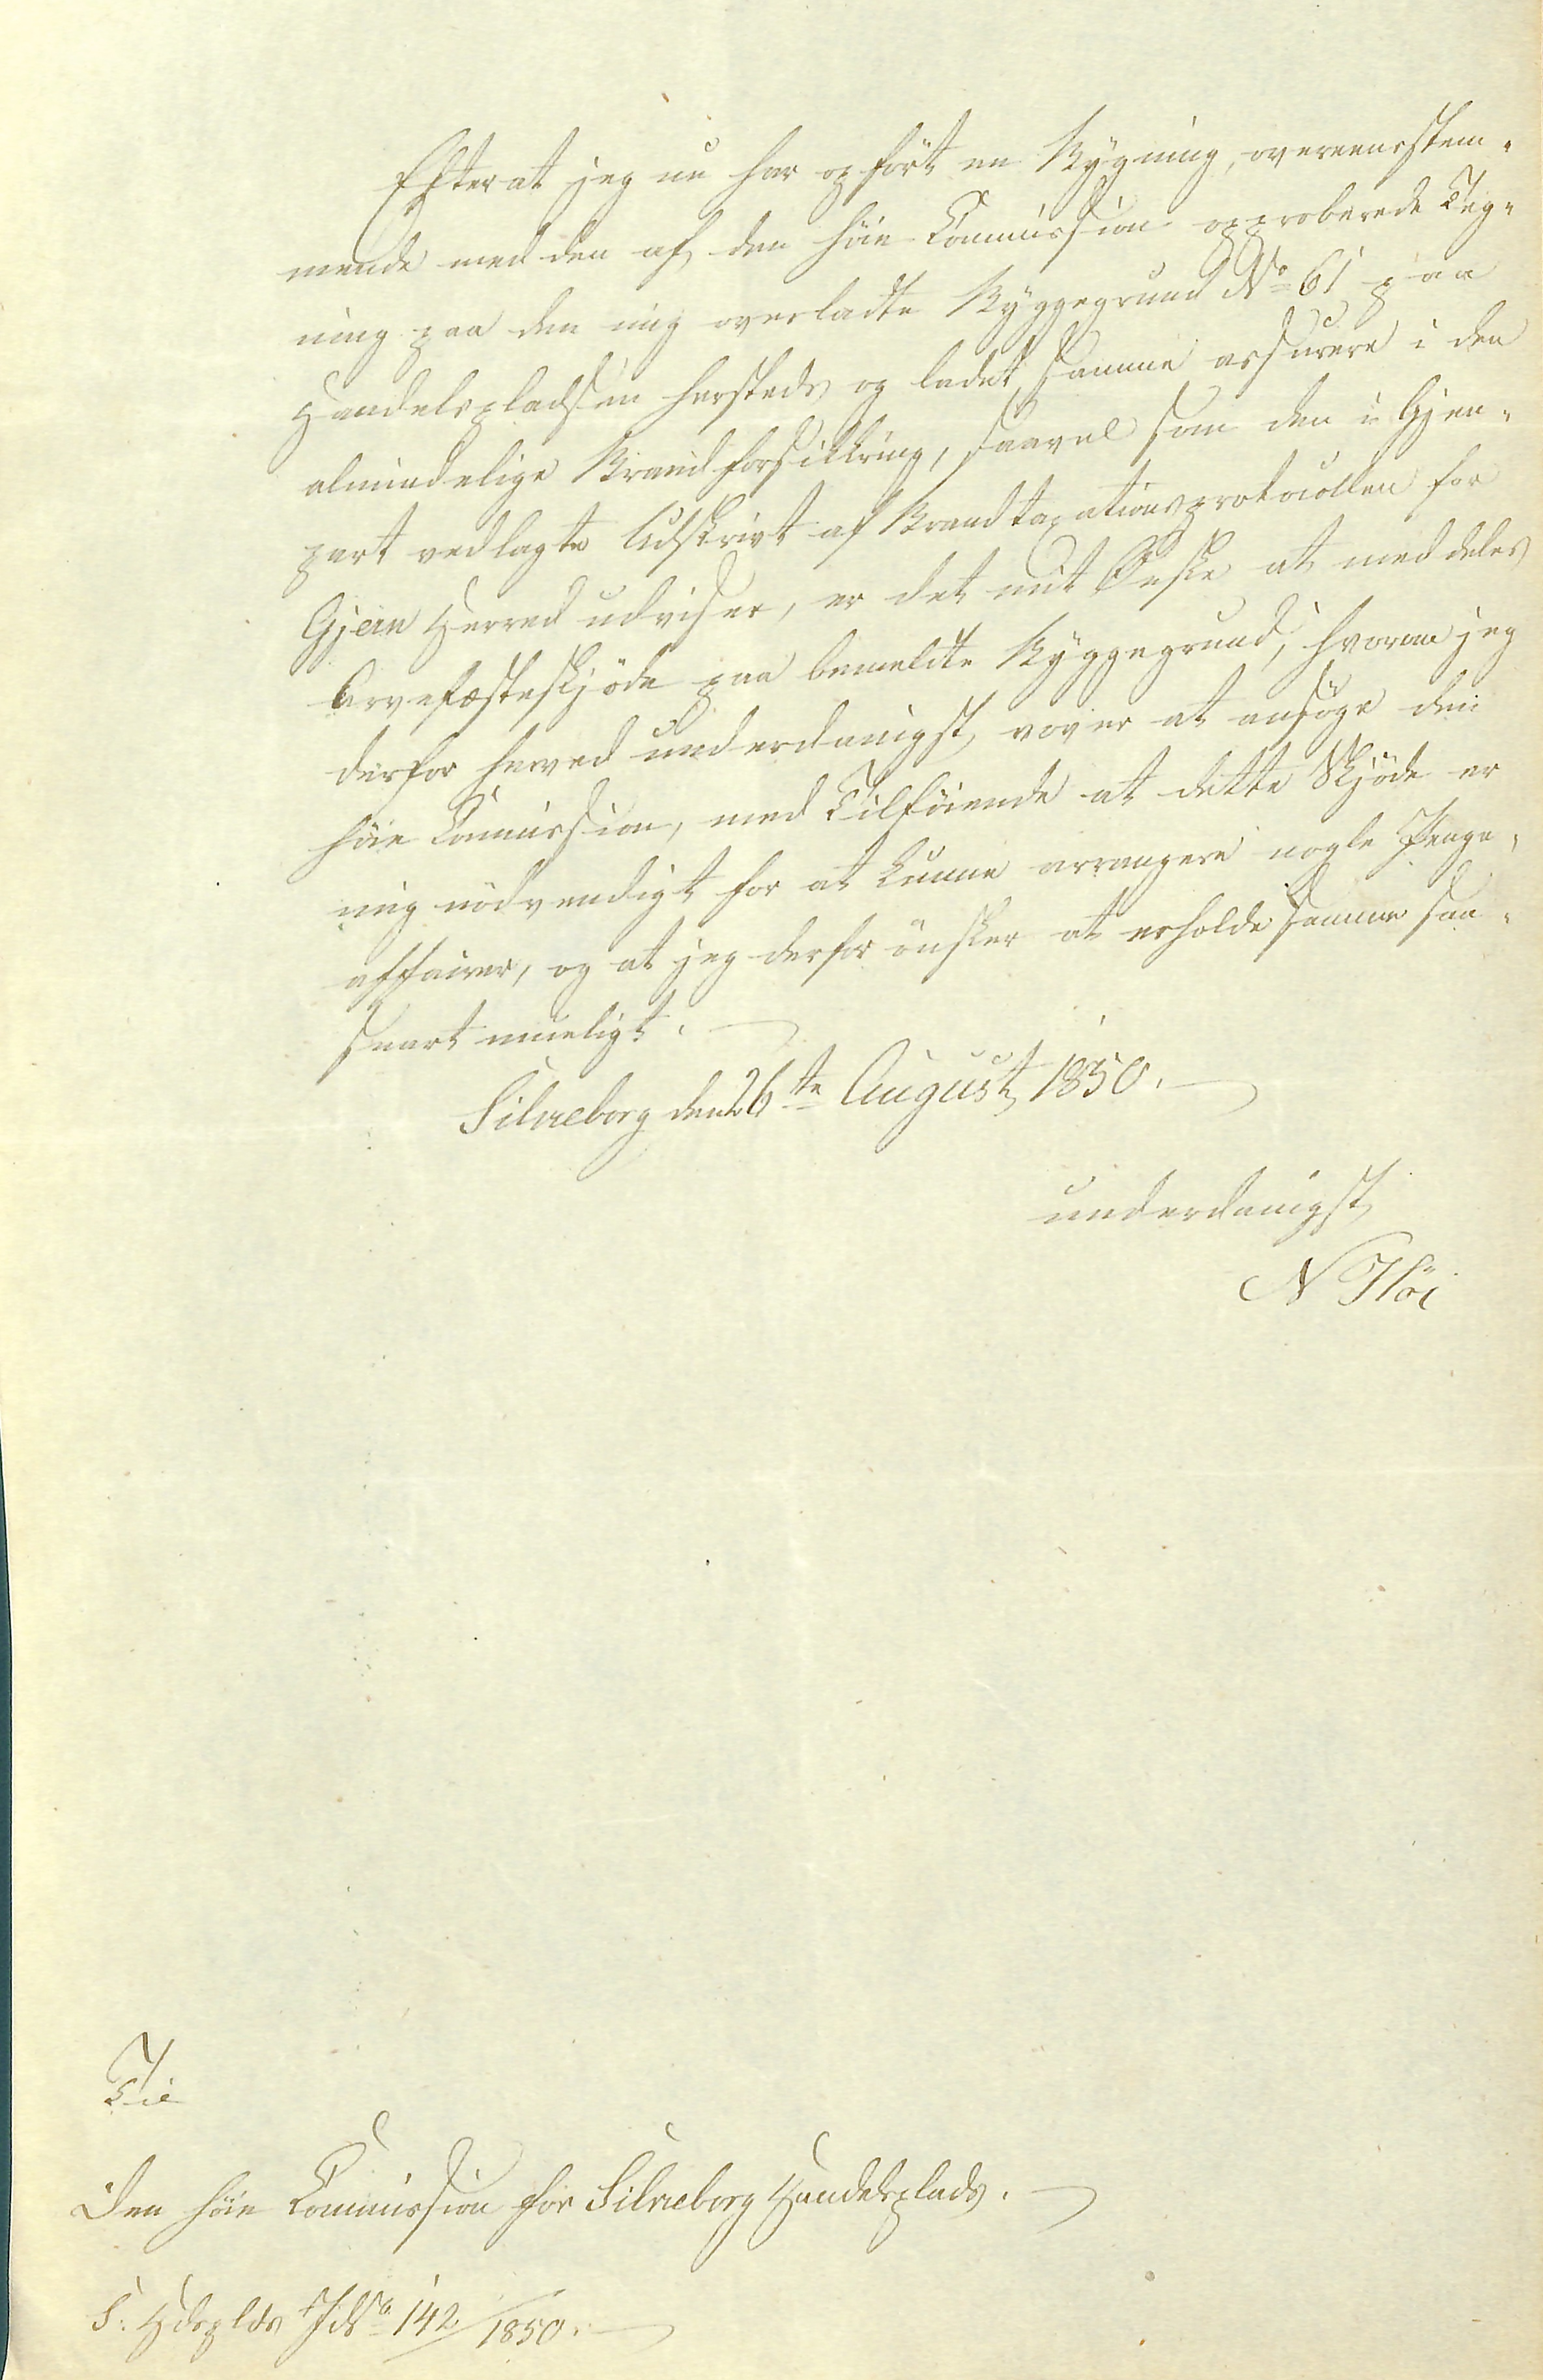 Efterat jeg nu har opført en Bygning, overeensstem-
mende med den af den høie Commission approberede Teg-
ning paa den mig overladte Byggegrund No 61 paa
Handelspladsen hersteds og ladet samme assurere i den
almindelige Brandforsikkring, saavel som den i Gjen-
part vedlagte Udskrivt af Brandtaxationsprotocollen for
Gjern Herred udviser, er det mit Ønske at meddeles
Arvefæsteskjøde paa bemeldte Byggegrund, hvorom jeg
derfor herved underdanigst vover at ansøge den
høie Commission, med Tilføiende at dette Skjøde er
mig nødvendigt for at kunne arrangere nogle Penge-
affairer, og at jeg derfor ønsker at erholde samme saa-
snart mueligt.
Silkeborg den 26te August 1850.
underdanigst
N Høi
Til
Den høie Commission for Silkeborg Handelsplads.
S. Hdsplds J No 142/1850.